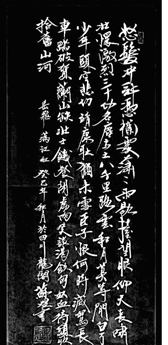 怒髮冲冠憑欄處瀟雨歇抬望眼仰天長嘯
壯懷激烈三十功名塵與土八千里路雲和月莫等閒白了
少年頭空悲切靖康恥猶未雪臣子恨何時滅駕長
車踏破賀蘭山缺壯志飢餐胡虜肉笑談渴飲匈奴血待從頭
拾舊山河 岳飛 滿江紅 癸巳年 月於